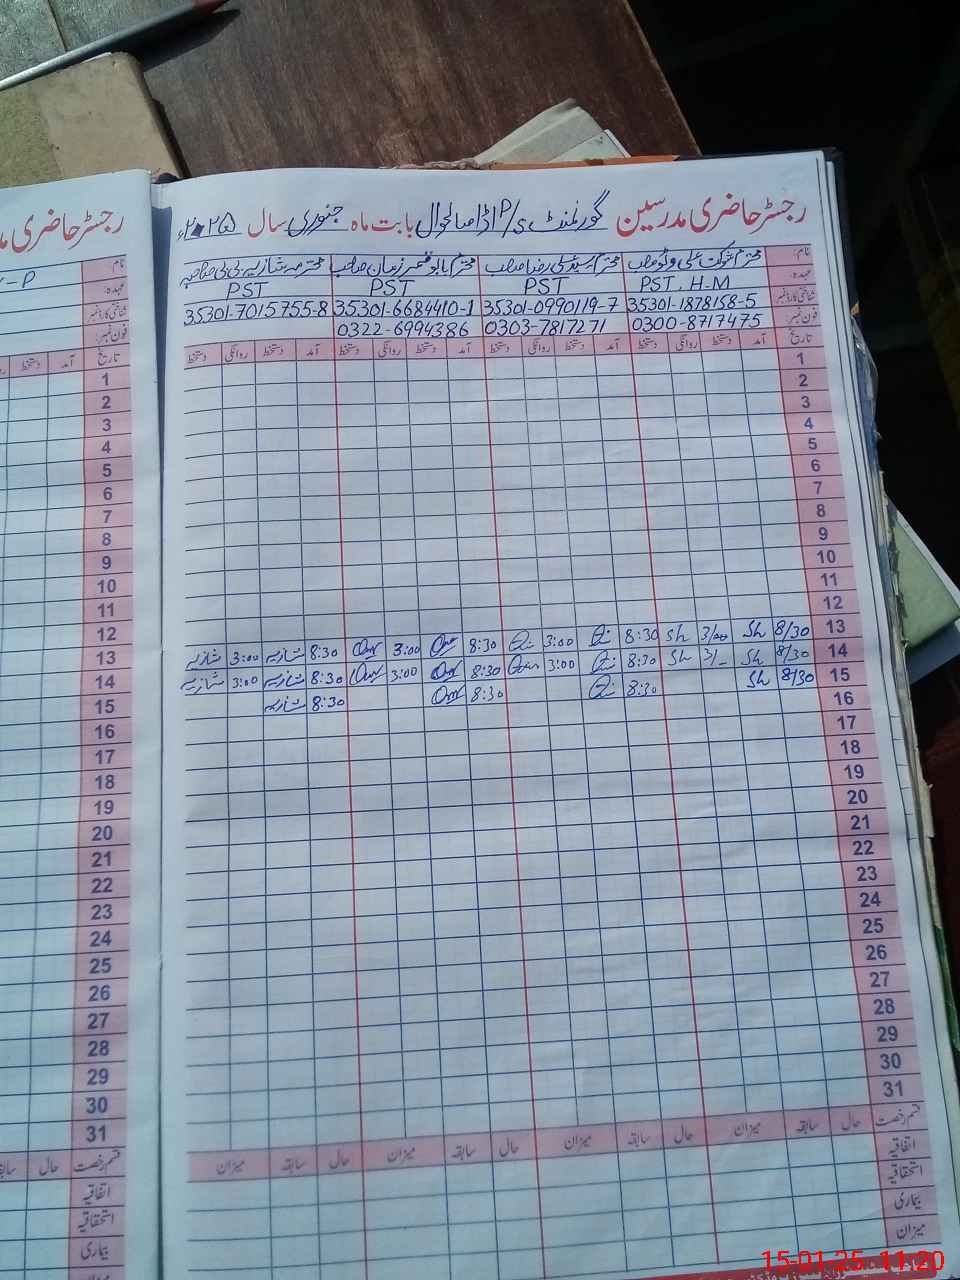 رجسٹر حاضری مدرسین گورنمنٹ P/S اڈا صالحوال بابت ماہ جنوری سال ۲۰۲۵ء
رجسٹر حاضری مد
نام: محترم شوکت علی صاحب محترم سید علی رضا صاحب محترم بابو قیصر زمان صاحب محترمہ شازیہ بی بی صاحبہ
عہدہ: PST, H-M PST PST PST
شناختی کارڈ نمبر 35301-1878158-5 35301-0990119-7 35301-6684410-1 35301-7015755-8
فون نمبر: 0300-8717475 0303-7817271 0322-6994386
تاریخ آمد دستخط روانگی دستخط آمد دستخط روانگی دستخط آمد دستخط روانگی دستخط آمد دستخط روانگی دستخط
1
2
3
4
5
6
7
8
9
10
11
12
13 8/30 Sh 3/00 Sh 8:30 3:00 8:30 3:00 8:30 شازیہ 3:00 شازیہ
14 8/30 Sh 3/_ Sh 8:30 3:00 8:30 3:00 8:30 شازیہ 3:00 شازیہ
15 8/30 Sh 8:30 8:30 8:30 شازیہ
16
17
18
19
20
21
22
23
24
25
26
27
28
29
30
31
قسم رخصت حال سابقہ میزان حال سابقہ میزان حال سابقہ میزان حال سابقہ میزان
اتفاقیہ
استحقاقیہ
بیماری
میزان
نام:
عہدہ:
شناختی کارڈ نمبر
فون نمبر:
تاریخ آمد دستخط
1
2
3
4
5
6
7
8
9
10
11
12
13
14
15
16
17
18
19
20
21
22
23
24
25
26
27
28
29
30
31
قسم رخصت حال سابقہ
اتفاقیہ
استحقاقیہ
بیماری
15-01-25 11:20